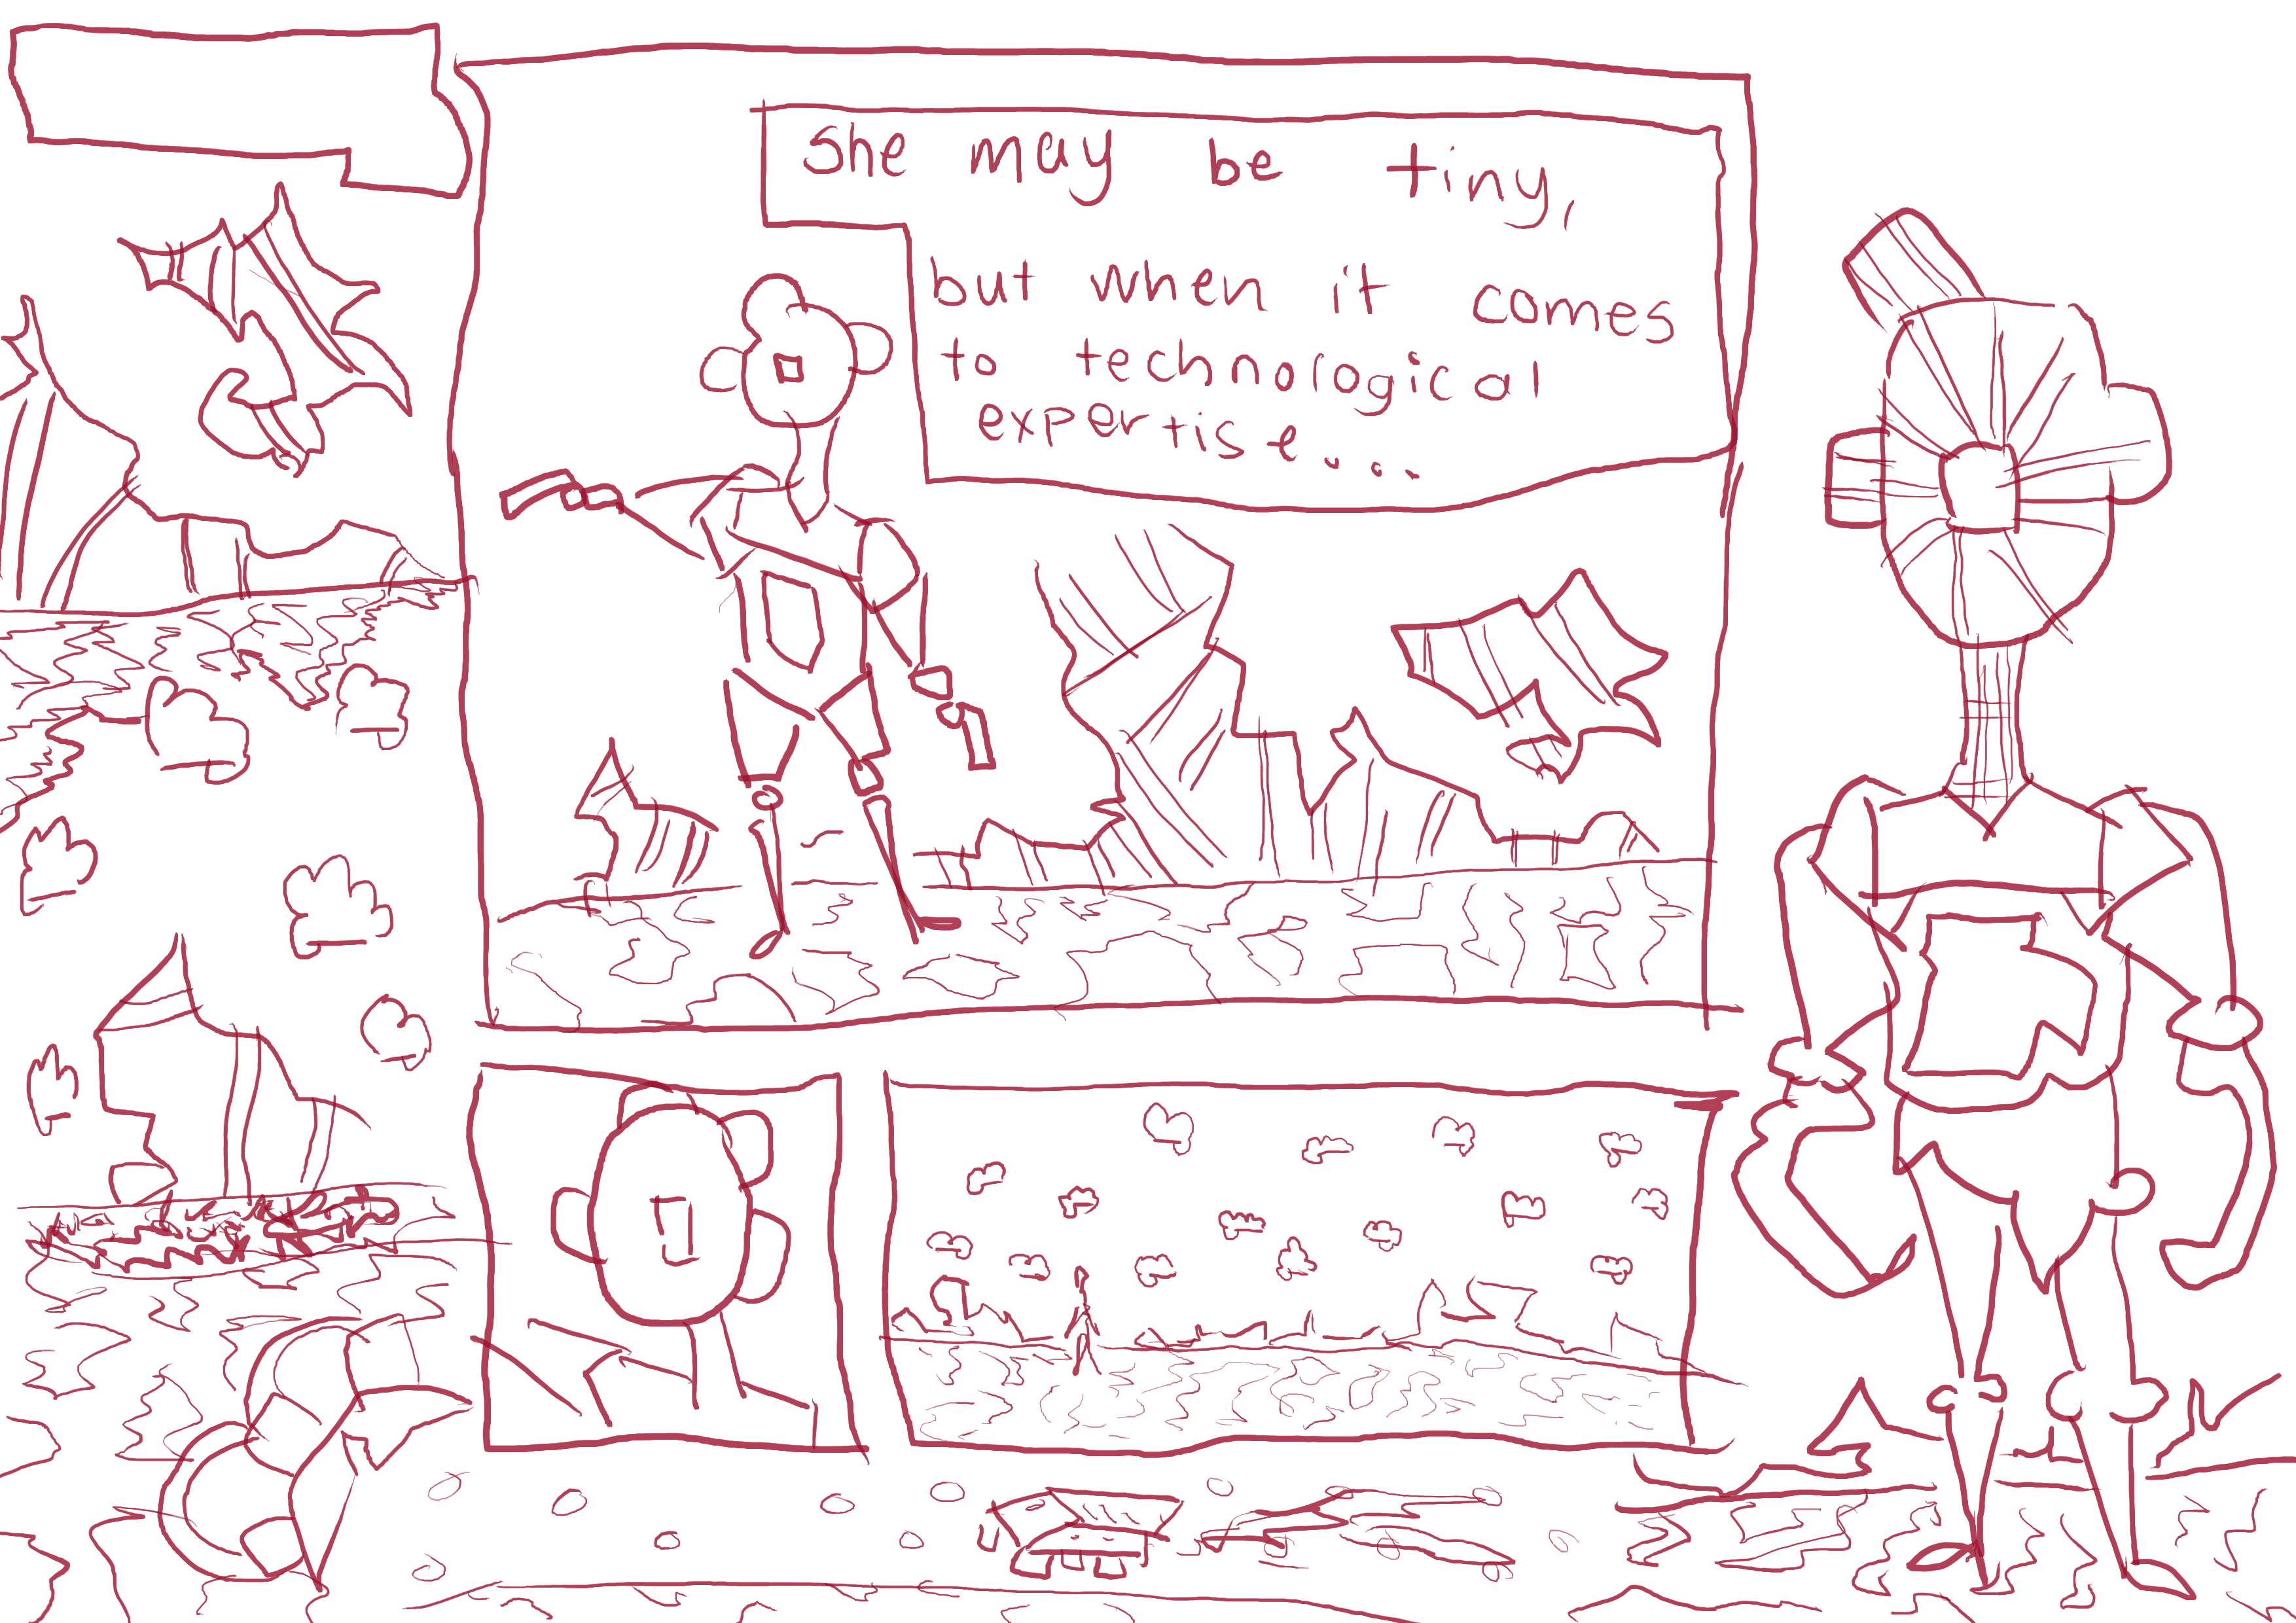 She may be tiny,
but when it comes
to technological
expertise...